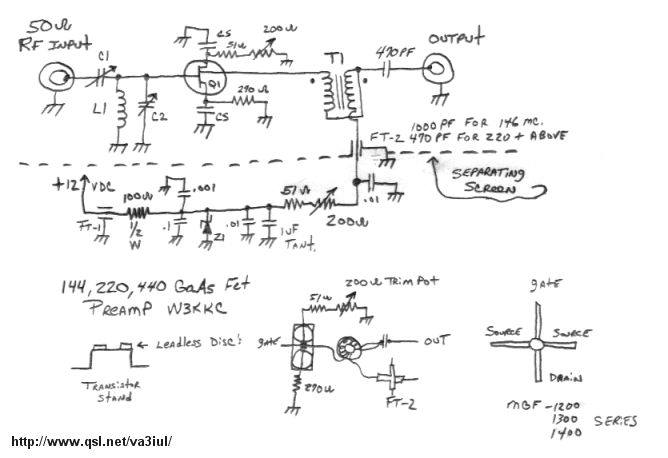 50Ω
RF INPUT
C1
L1
C2
CS
51Ω
200Ω
Q1
270Ω
CS
T1
470PF
OUTPUT
1000 PF FOR 146 MC.
FT-2 470 PF FOR 220 + ABOVE
SEPARATING
SCREEN
+12 VDC
FT-1
100Ω
1/2
W
.001
.1
Z1
.01
1UF
TANT.
51Ω
200Ω
.01
144, 220, 440 GaAs Fet
PreamP W3KKC
Leadless Disc's
TRANSISTOR
STAND
200Ω TRIM POT
51Ω
gate
270Ω
OUT
FT-2
gATE
SOURCE
SOURCE
DRAIN
MGF -1200
1300 SERIES
1400
http://www.qsl.net/va3iul/